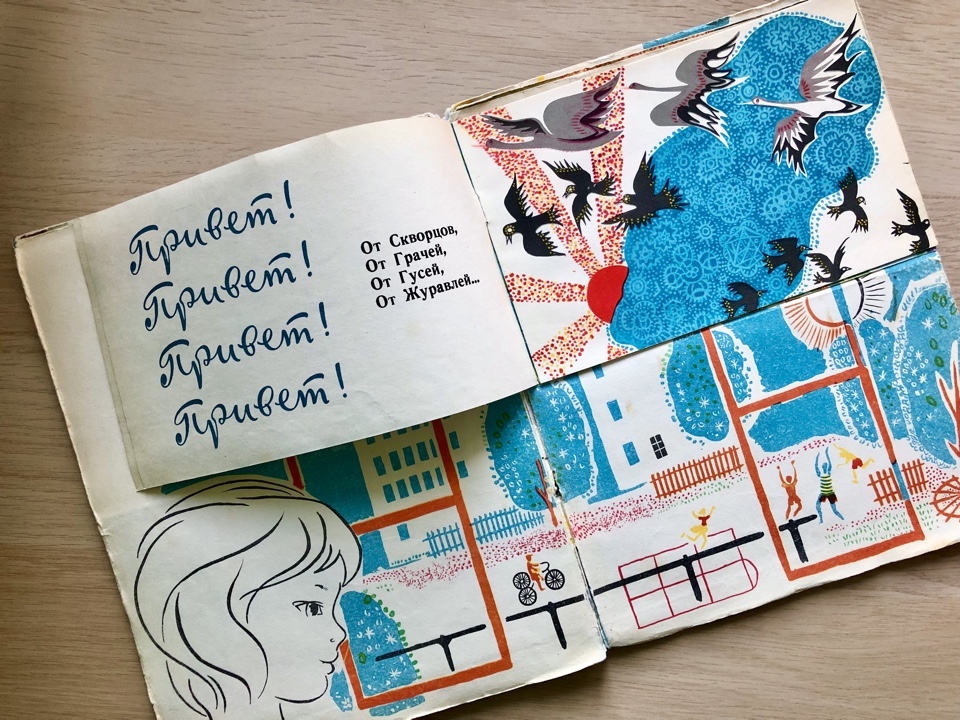 Привет!
Привет!
Привет!
Привет!
От Скворцов,
От Грачей,
От Гусей,
От Журавлей...